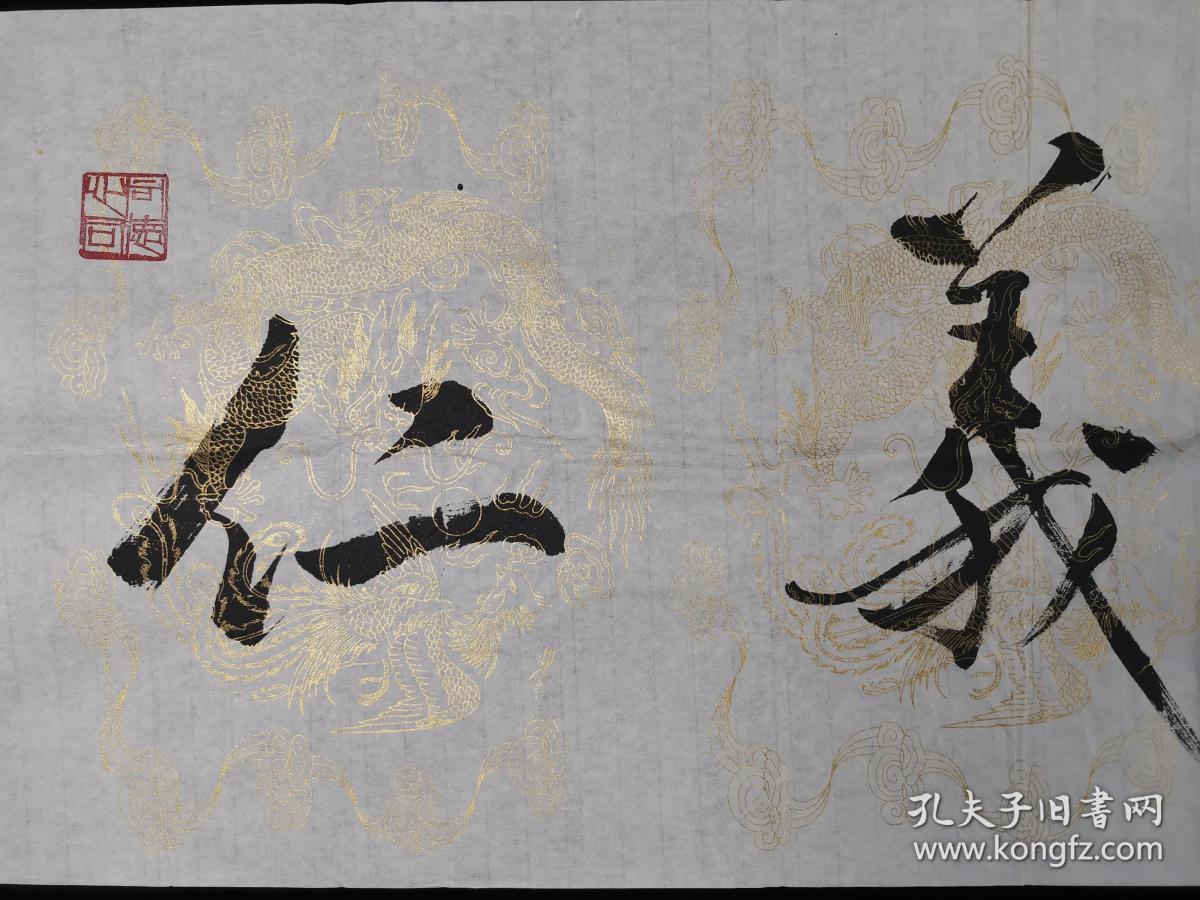 仁
義
孔夫子旧書网
www.kongfz.com